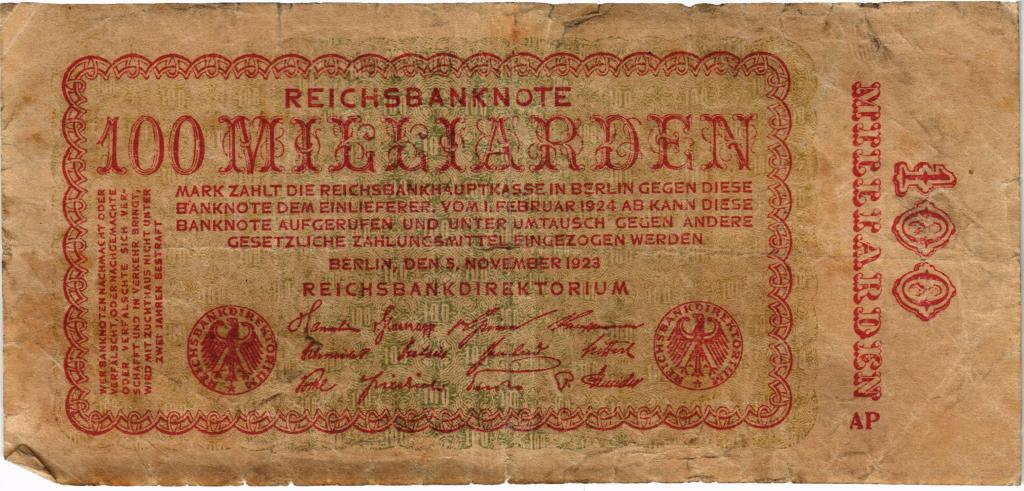 REICHSBANKNOTE
100 MILLIARDEN
MARK ZAHLT DIE REICHSBANKHAUPTKASSE IN BERLIN GEGEN DIESE
BANKNOTE DEM EINLIEFERER. VOM 1. FEBRUAR 1924 AB KANN DIESE
BANKNOTE AUFGERUFEN UND UNTER UMTAUSCH GEGEN ANDERE
GESETZLICHE ZAHLUNGSMITTEL EINGEZOGEN WERDEN
BERLIN, DEN 5. NOVEMBER 1923
REICHSBANKDIREKTORIUM
WER BANKNOTEN NACHMACHT ODER
VERFÄLSCHT, ODER NACHGEMACHTE
ODER VERFÄLSCHTE SICH VER-
SCHAFFT UND IN VERKEHR BRINGT,
WIRD MIT ZUCHTHAUS NICHT UNTER
ZWEI JAHREN BESTRAFT
REICHSBANKDIREKTORIUM
REICHSBANKDIREKTORIUM
100
MILLIARDEN
AP